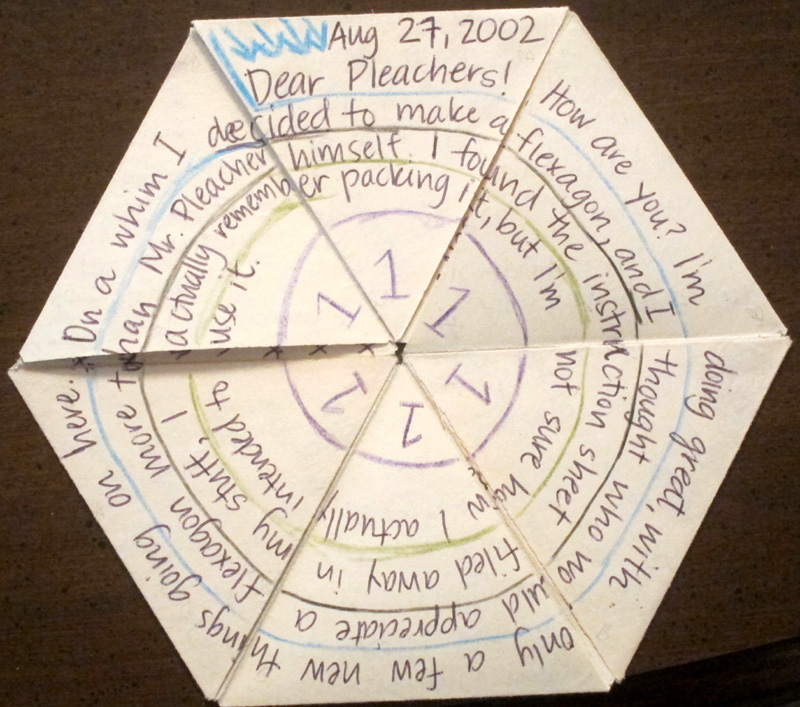 Aug 27, 2002
Dear Pleachers!
How are you? I'm doing great, with only a few new things going on here.
On a whim I decided to make a flexagon, and I thought who would appreciate a flexagon more
than Mr. Pleacher himself. I found the instruction sheet filed away in my stuff, I
actually remember packing it, but I'm not sure how I actually intended to
use it.
1 1 1 1 1 1